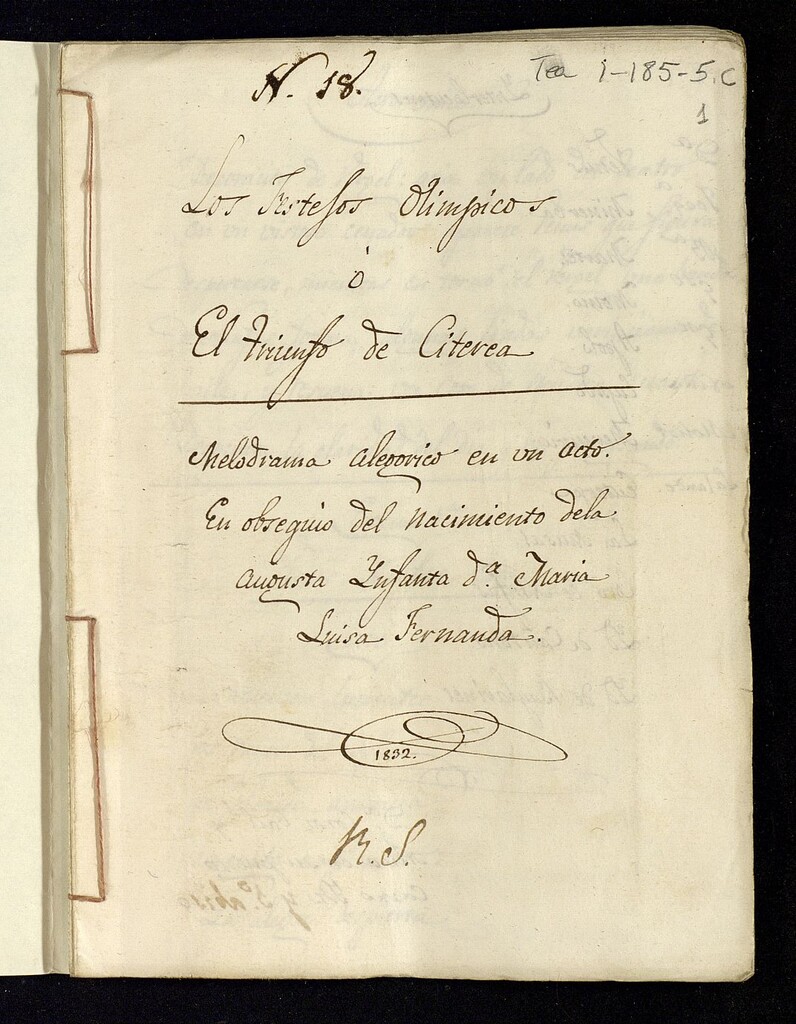 N. 18.
Tea 1-185-5, C
1
Los Festejos Olimpicos
ó
El triunfo de Citerea
Melodrama alegorico en un acto.
En obsequio del nacimiento dela
augusta Ynfanta d.ª Maria
Luisa Fernanda.
1832.